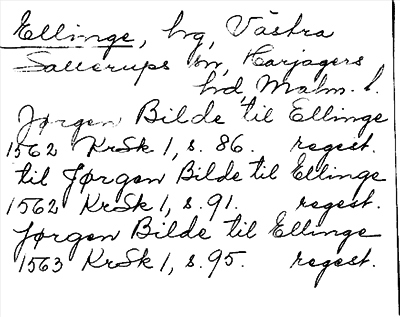 Ellinge, hg, Västra
Sallerups sn, Harjagers
hd, Malm. l.
Jørgen Bilde til Ellinge
1562 KrSk 1, s. 86. regest.
til Jørgen Bilde til Ellinge
1562 KrSk 1, s. 91. regest.
Jørgen Bilde til Ellinge
1563 KrSk 1, s. 95. regest.